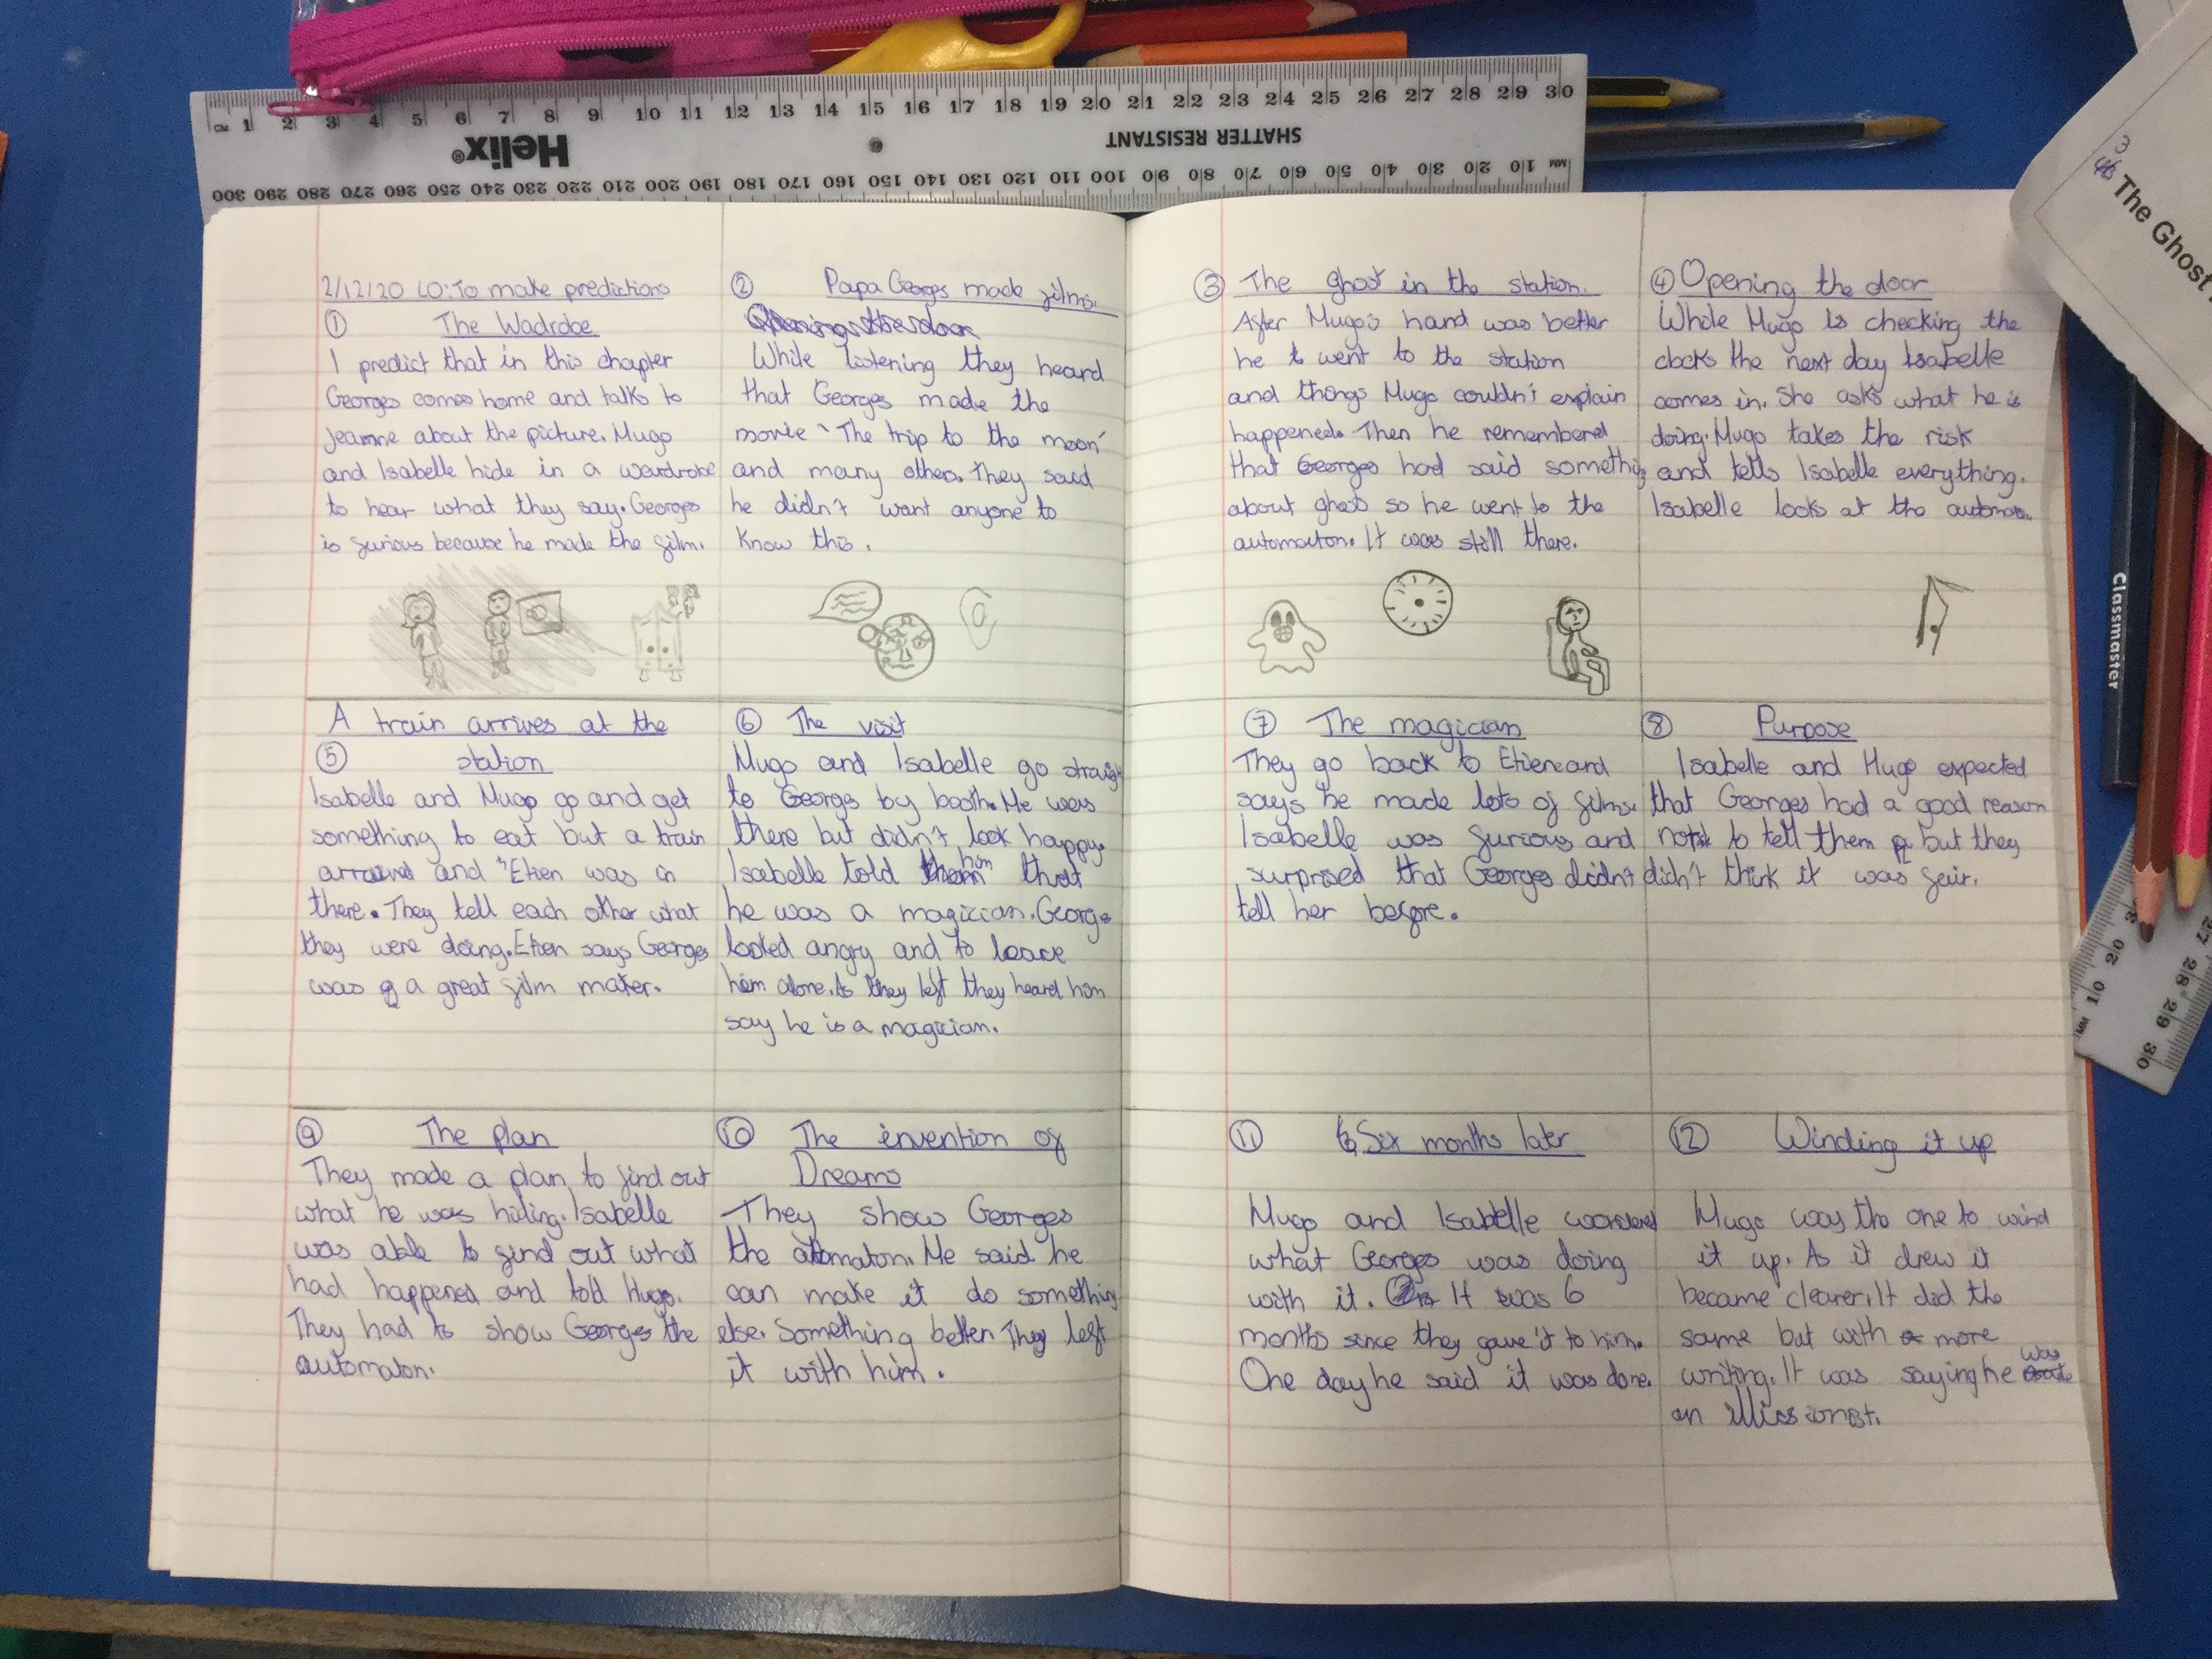 CM 1 2 3 4 5 6 7 8 9 10 11 12 13 14 15 16 17 18 19 20 21 22 23 24 25 26 27 28 29 30
Helix®
SHATTER RESISTANT
MM 10 20 30 40 50 60 70 80 90 100 110 120 130 140 150 160 170 180 190 200 210 220 230 240 250 260 270 280 290 300
3
The Ghost
2/12/20 LO: To make predictions
① The Wadrobe
I predict that in this chapter
Georges comes home and talks to
jeanne about the picture. Hugo
and Isabelle hide in a wardrobe
to hear what they say. Georges
is furious because he made the film.
② Papa Georges made films.
While listening they heard
that Georges made the
movie 'The trip to the moon'
and many others. They said
he didn't want anyone to
know this.
③ The ghost in the station.
After Hugo's hand was better
he went to the station
and things Hugo couldn't explain
happened. Then he remembered
that Georges had said something
about ghosts so he went to the
automaton. It was still there.
④ Opening the door
While Hugo is checking the
clocks the next day Isabelle
comes in. She asks what he is
doing. Hugo takes the risk
and tells Isabelle everything.
Isabelle looks at the automaton.
A train arrives at the
⑤ station
Isabelle and Hugo go and get
something to eat but a train
arraived and Etien was in
there. They tell each other what
they were doing. Etien says Georges
was a great film maker.
⑥ The visit
Hugo and Isabelle go straight
to Georges by booth. He was
there but didn't look happy.
Isabelle told him that
he was a magician. George
looked angry and to leave
him alone. As they left they heard him
say he is a magician.
⑦ The magician
They go back to Etien and
says he made lots of films.
Isabelle was furious and
surprised that Georges didn't
tell her before.
⑧ Purpose
Isabelle and Hugo expected
that Georges had a good reason
not to tell them but they
didn't think it was fair.
⑨ The plan
They made a plan to find out
what he was hiding. Isabelle
was able to find out what
had happened and told Hugo.
They had to show Georges the
automaton.
⑩ The invention of
Dreams
They show Georges
the atomaton. He said he
can make it do something
else. Something better. They left
it with him.
⑪ Six months later
Hugo and Isabelle wondered
what Georges was doing
with it. It was 6
months since they gave it to him.
One day he said it was done.
⑫ Winding it up
Hugo was the one to wind
it up. As it drew it
became clearer. It did the
same but with more
writing. It was saying he was
an illissionist.
Classmaster
MM 10 20 30
30 29 28 27